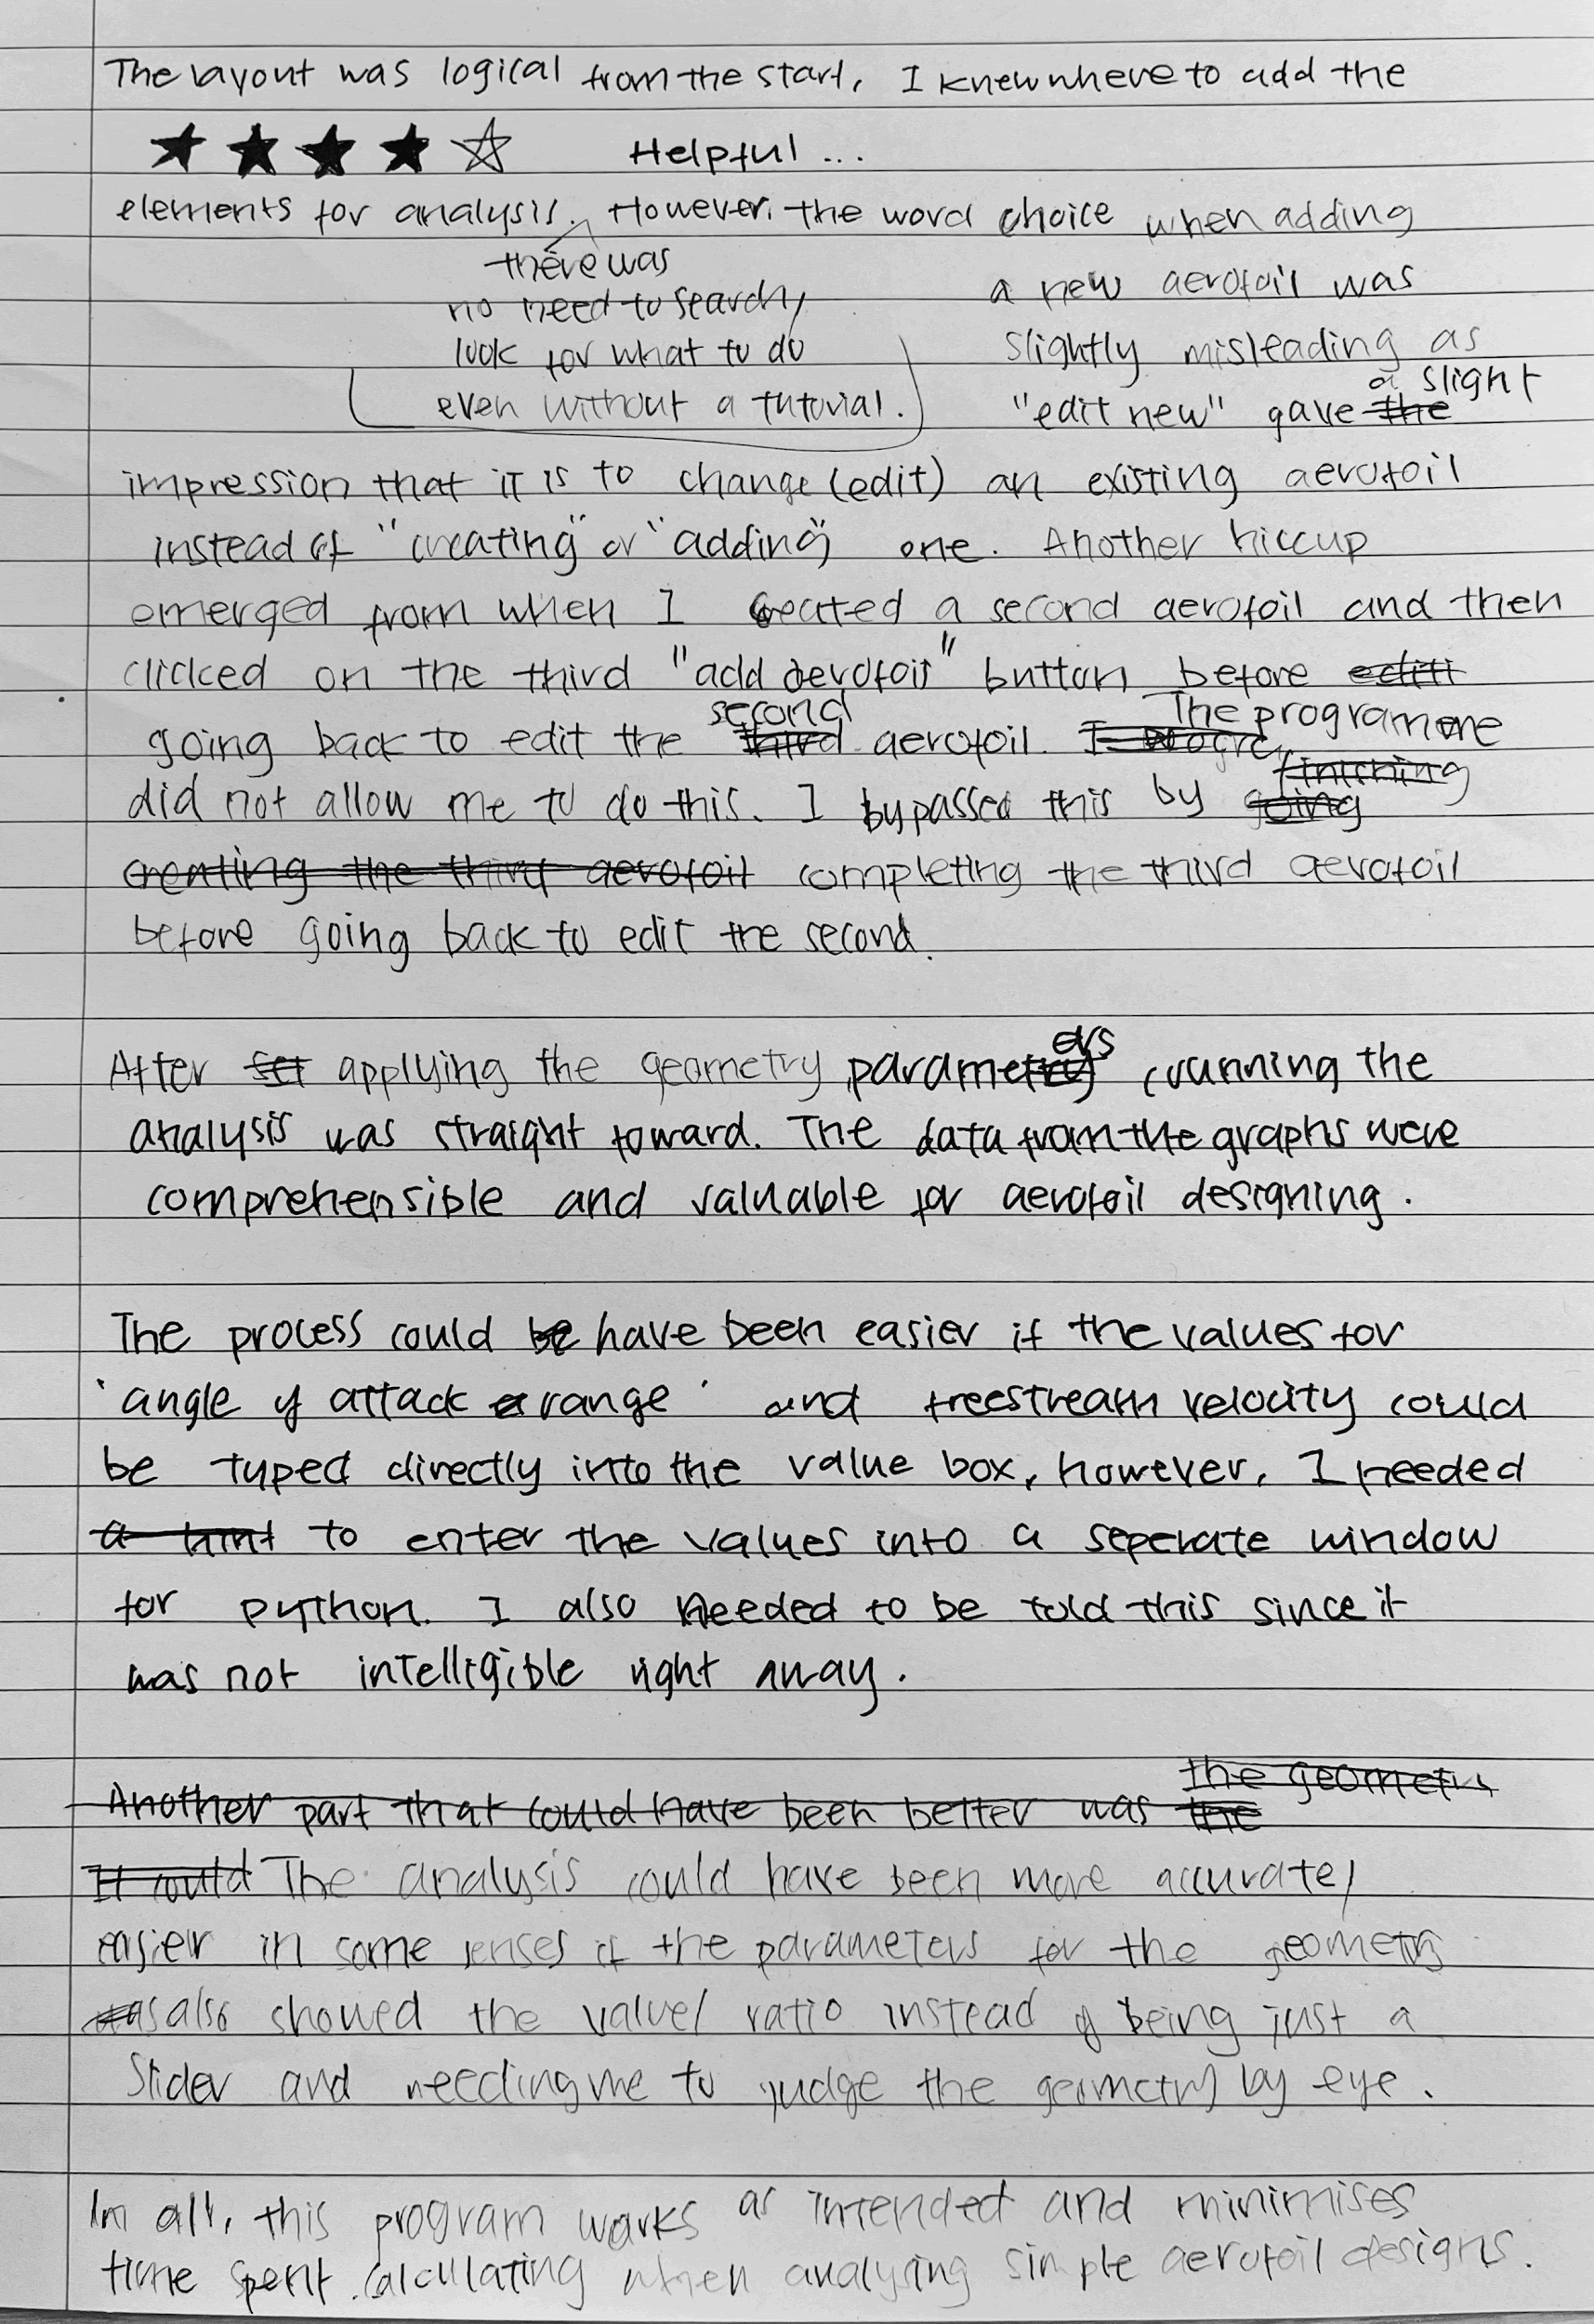 The layout was logical from the start, I knew where to add the
★★★★☆ Helpful ...
elements for analysis. However, the word choice when adding
there was
no need to search/
look for what to do
even without a tutorial.
a new aerofoil was
slightly misleading as
"edit new" gave ~~the~~ a slight
impression that it is to change (edit) an existing aerofoil
instead of "creating" or "adding" one. Another hiccup
emerged from when I created a second aerofoil and then
clicked on the third "add aerofoil" button before ~~editi~~
going back to edit the ~~third~~ second aerofoil. ~~I progra~~ The programme
did not allow me to do this. I bypassed this by ~~going~~ ~~finishing~~
~~creating the third aerofoil~~ completing the third aerofoil
before going back to edit the second.
After ~~set~~ applying the geometry parameters, running the
analysis was straight foward. The data from the graphs were
comprehensible and valuable for aerofoil designing.
The process could ~~be~~ have been easier if the values for
'angle of attack range' and freestream velocity could
be typed directly into the value box, however, I needed
~~a hint~~ to enter the values into a seperate window
for python. I also needed to be told this since it
was not intelligible right away.
~~Another part that could have been better was the~~ ~~the geometry~~
~~It could~~ The analysis could have been more accurate/
easier in some senses if the parameters for the geometry
~~was~~ also showed the value/ ratio instead of being just a
slider and needing me to judge the geometry by eye.
In all, this program works as intended and minimises
time spent calculating when analysing simple aerofoil designs.